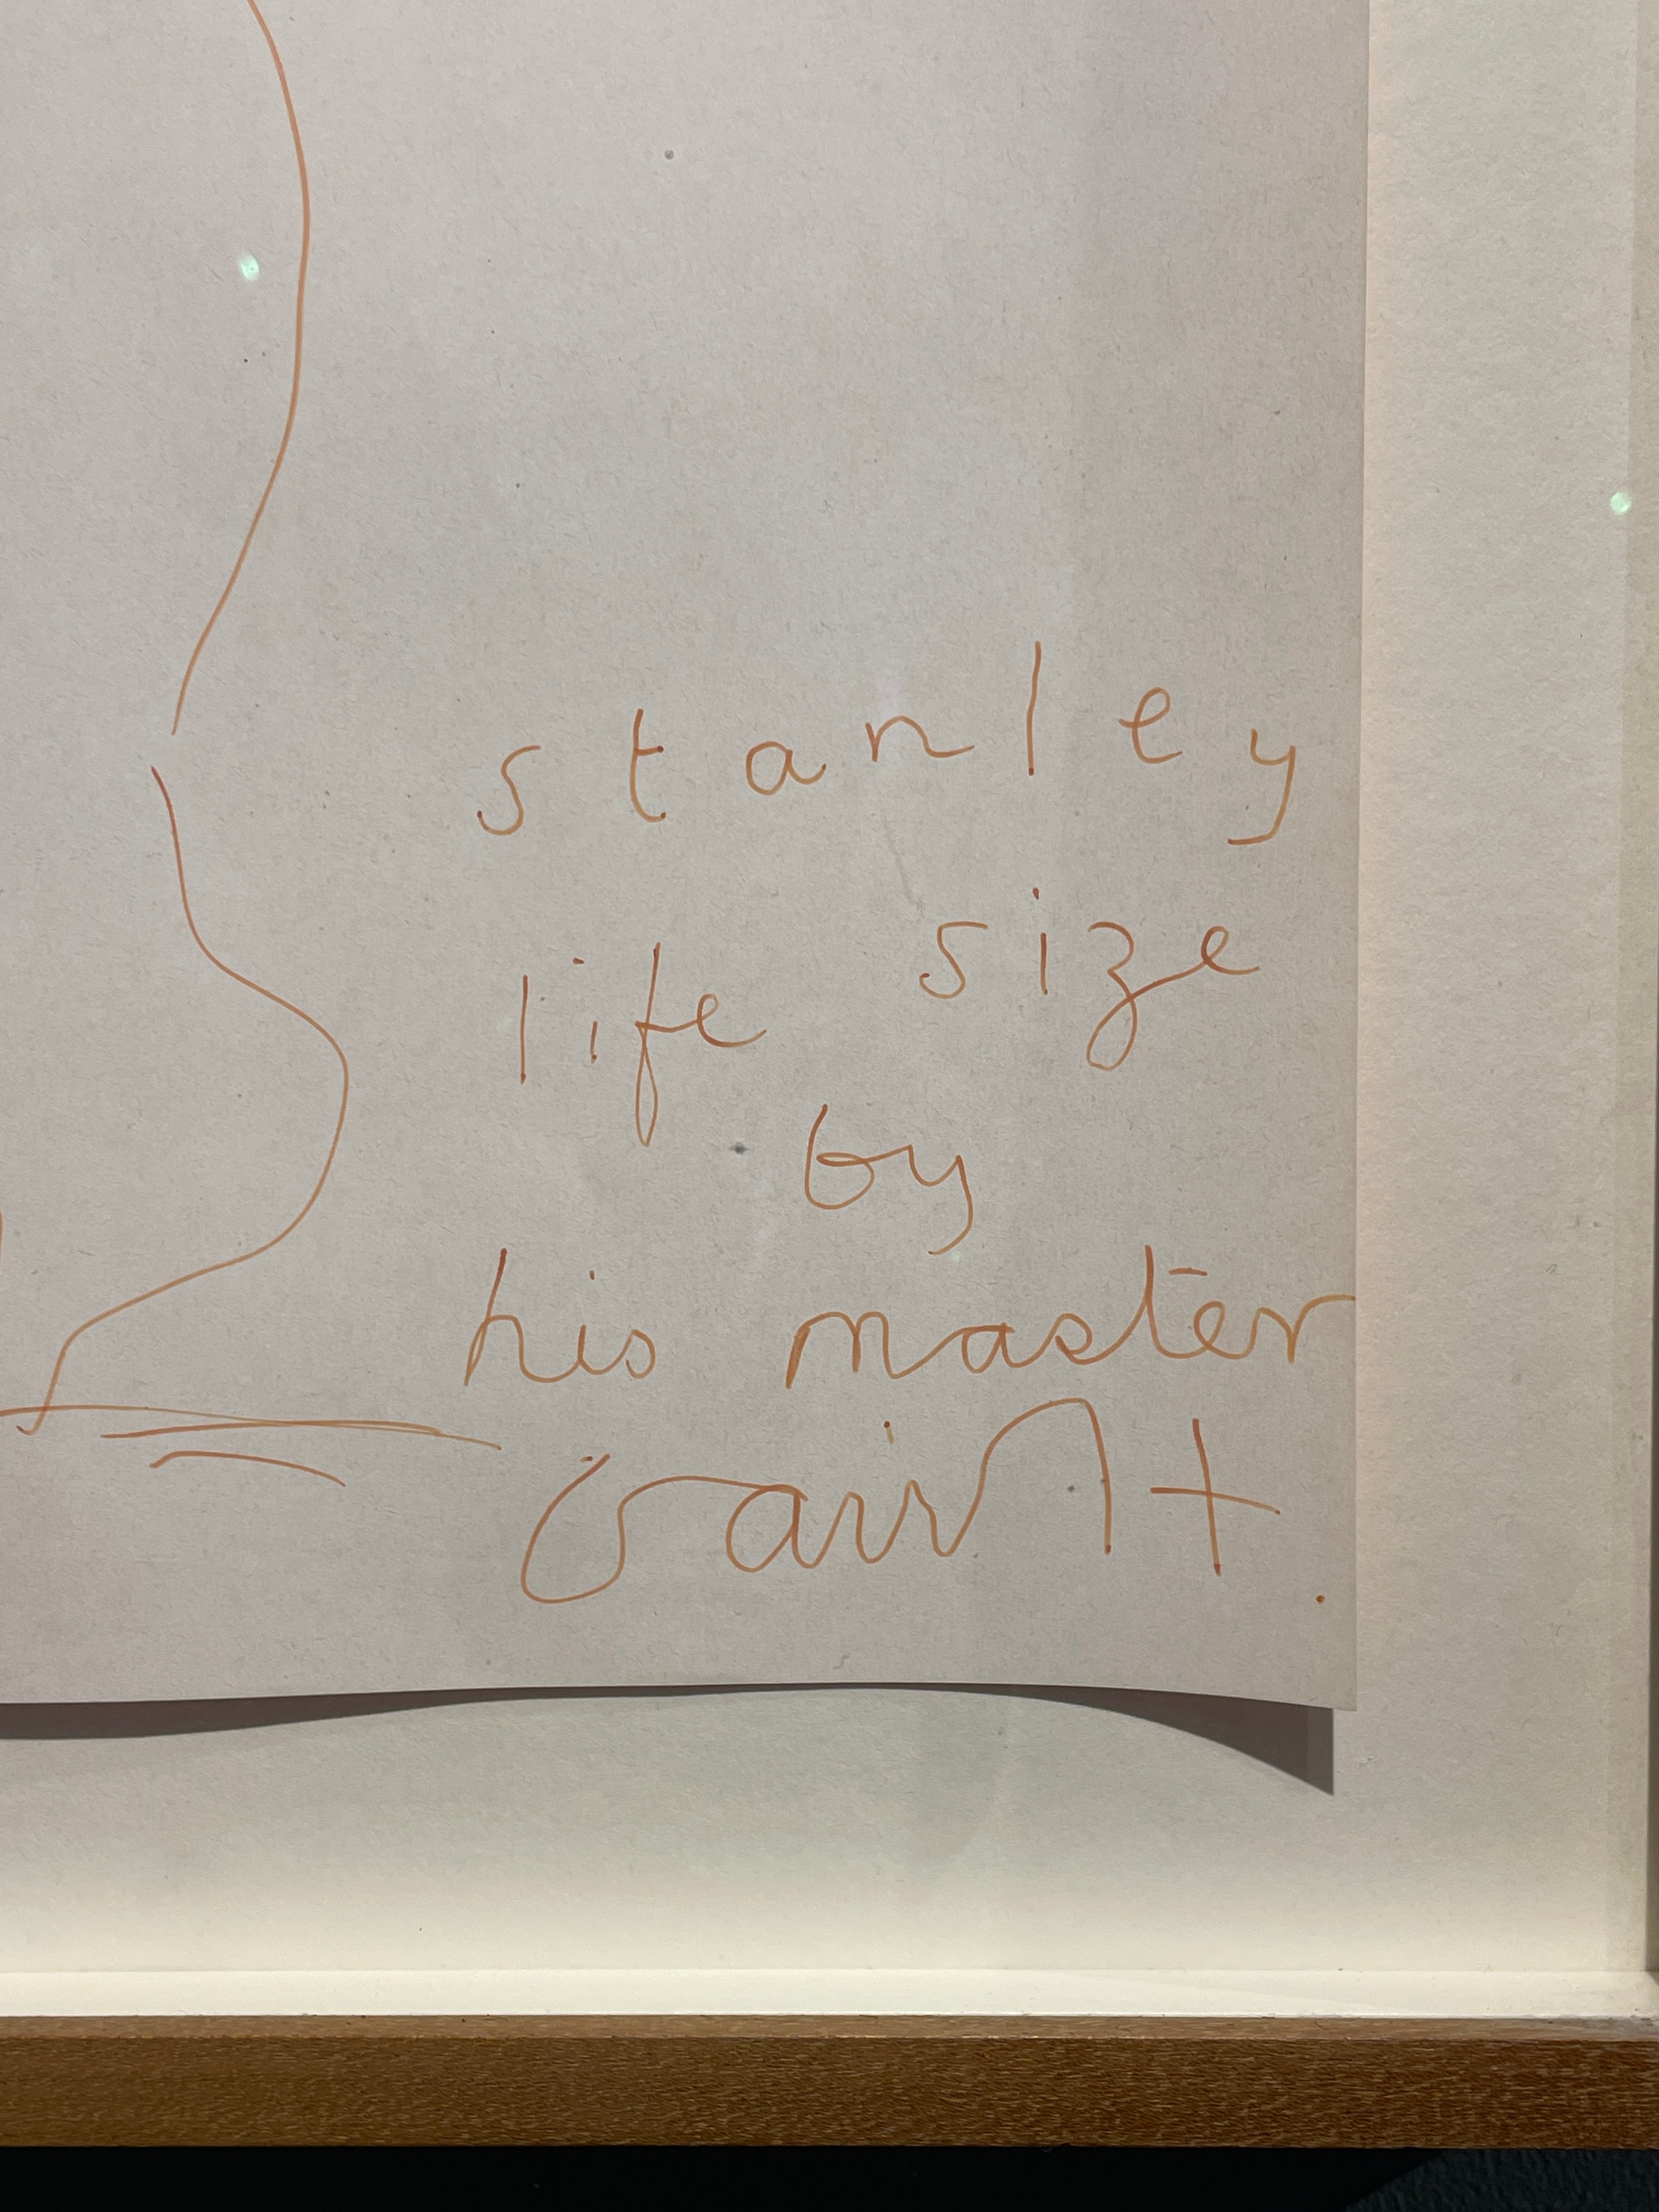 stanley
life size
by
his master